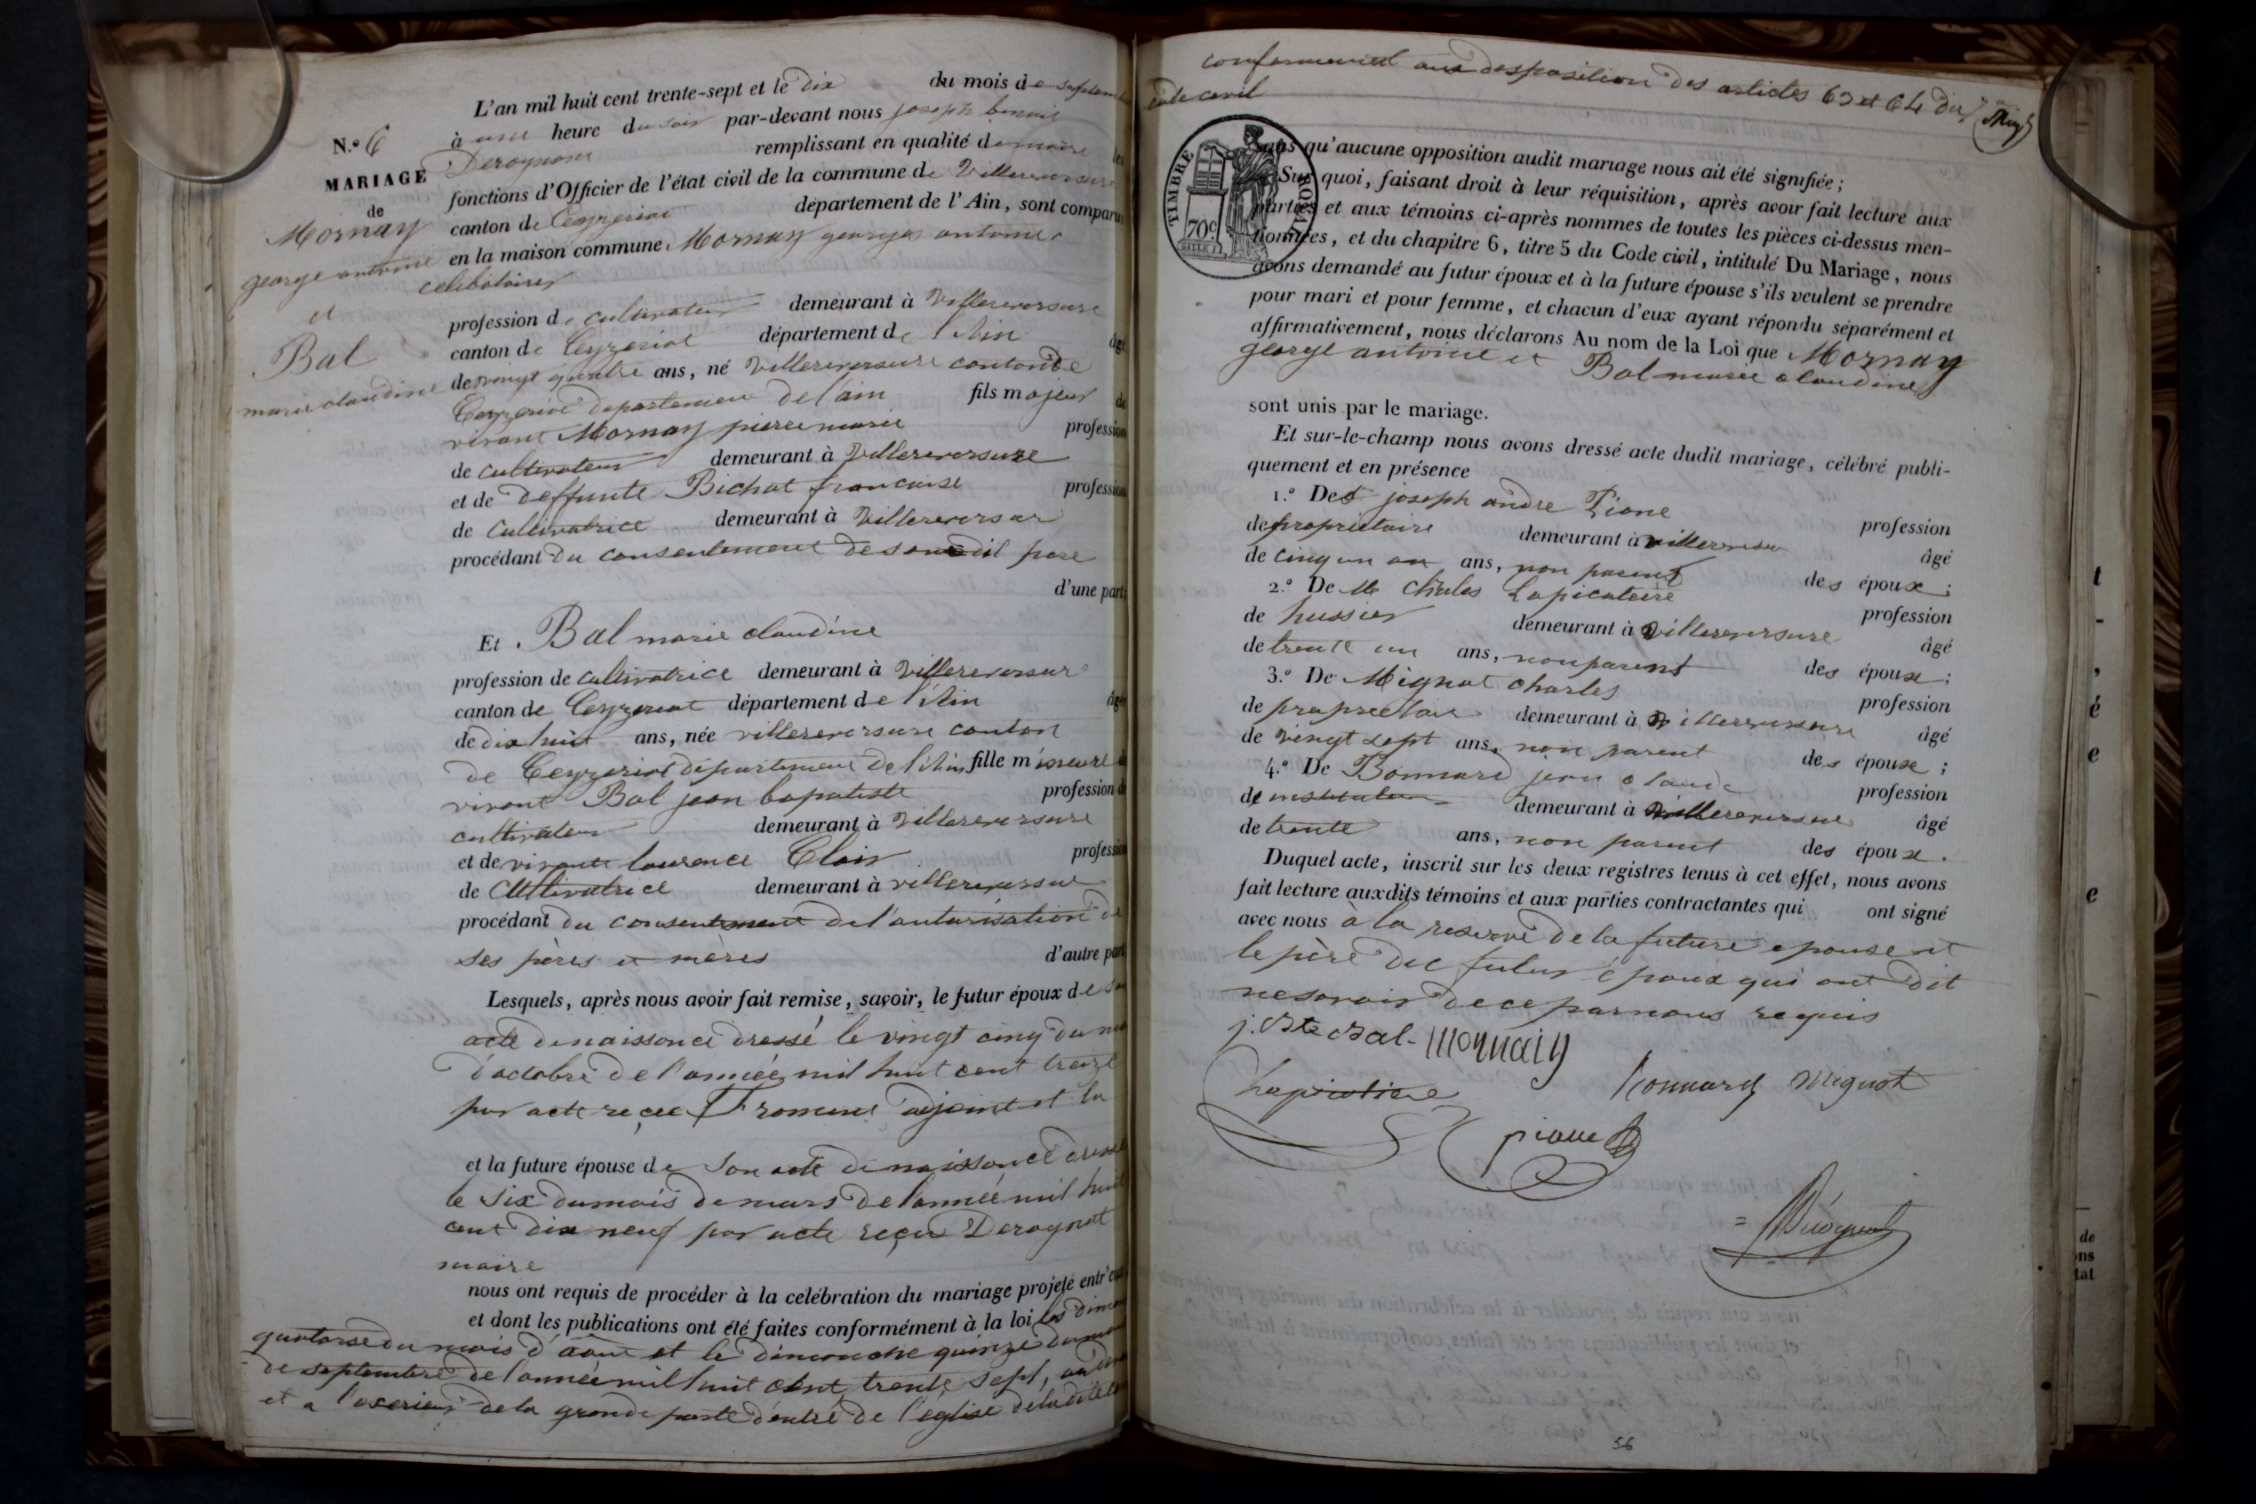 N.º 6
MARIAGE
de
Mornay
george antoine
et
Bal
marie claudine
L'an mil huit cent trente-sept et le dix du mois de septem
à une heure du soir par-devant nous joseph benoit
Derognat remplissant en qualité de maire les
fonctions d'Officier de l'état civil de la commune de Villereversure
canton de Ceyzeriat département de l'Ain, sont comparus
en la maison commune Mornay georges antoine
celibataire
profession de cultivateur demeurant à Villereversure
canton de Ceyzeriat département de l'Ain âgé
de vingt quatre ans, né Villereversure canton de
Ceyzeriat departement de l'ain fils majeur de
vivant Mornay pierre marie profession
de cultivateur demeurant à Villereversure
et de deffunte Bichat francoise profession
de cultivatrice demeurant à Villereversur
procédant du consentement de son dit pere
d'une part;
Et Bal marie claudine
profession de cultivatrice demeurant à Villereversur
canton de Ceyzeriat département de l'Ain âgée
de dix huit ans, née villereversure canton
de Ceyzeriat département de l'Ain fille mineure de
vivant Bal jean baptiste profession de
cultivateur demeurant à Villereversure
et de vivante laurence Clair profession
de cultivatrice demeurant à villereversure
procédant du consentement de l'autorisation de
ses pères et mères d'autre part
Lesquels, après nous avoir fait remise, savoir, le futur époux de son
acte de naissance dressé le vingt cinq du m
d'octobre de l'année mil huit cent treize
par acte reçu Froment adjoint et la
et la future épouse de son acte de naissance dressé
le six du mois de mars de l'année mil huit
cent dix neuf par acte reçu Derognat
maire
nous ont requis de procéder à la celébration du mariage projeté entr'eux
et dont les publications ont été faites conformément à la loi les diman
quatorse du mois d'aout et le dimanche quinze du mois
de septembre de l'année mil huit cent trente sept, au
et a l'exterieur de la grande porte d'entré de l'église de la dite
conformement aux desposition des articles 63 et 64 du
code civil
TIMBRE ROYAL
70c
sans qu'aucune opposition audit mariage nous ait été signifiée;
Sur quoi, faisant droit à leur réquisition, après avoir fait lecture aux
parties et aux témoins ci-après nommes de toutes les pièces ci-dessus men-
tionnées, et du chapitre 6, titre 5 du Code civil, intitulé Du Mariage, nous
avons demandé au futur époux et à la future épouse s'ils veulent se prendre
pour mari et pour femme, et chacun d'eux ayant répondu séparément et
affirmativement, nous déclarons Au nom de la Loi que Mornay
george antoine et Bal marie claudine
sont unis par le mariage.
Et sur-le-champ nous avons dressé acte dudit mariage, célébré publi-
quement et en présence
1.º De joseph andre Pione profession
de propriétaire demeurant à villereversur âgé
de cinq un an ans, non parent des époux;
2.º De Mr Charles Lapicotiere profession
de hussier demeurant à Villereversure âgé
de trente un ans, non parent des époux;
3.º De Mignot charles profession
de propriétaire demeurant à villereversure âgé
de vingt sept ans, non parent des époux;
4.º De Bonnard jean claude profession
de instituteur demeurant à Villereversure âgé
de trente ans, non parent des époux.
Duquel acte, inscrit sur les deux registres tenus à cet effet, nous avons
fait lecture auxdits témoins et aux parties contractantes qui ont signé
avec nous à la reserve de la future epouse et
le père du futur époux qui ont dit
ne savoir de ce par nous requis
j. Bte Bal - Mornaiy
Lapicotiere Bonnard Mignot
pione
Derognat
56